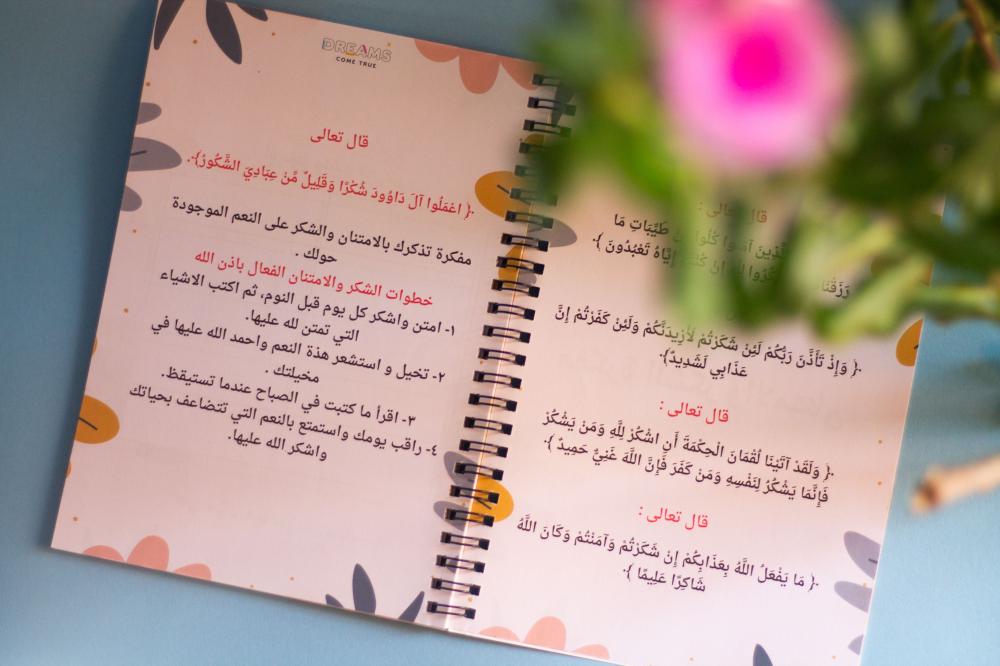 قال تعالى :
الذين آمنوا كلوا من طَيِّبَاتِ مَا
رَزَقْنَا وَاشْكُرُوا لِلَّهِ إِنْ كُنْتُمْ إِيَّاهُ تَعْبُدُونَ ﴾.
﴿ وَإِذْ تَأَذَّنَ رَبُّكُمْ لَئِنْ شَكَرْتُمْ لَأَزِيدَنَّكُمْ وَلَئِنْ كَفَرْتُمْ إِنَّ
عَذَابِي لَشَدِيدٌ﴾.
قال تعالى :
﴿ وَلَقَدْ آتَيْنَا لُقْمَانَ الْحِكْمَةَ أَنِ اشْكُرْ لِلَّهِ وَمَنْ يَشْكُرْ
فَإِنَّمَا يَشْكُرُ لِنَفْسِهِ وَمَنْ كَفَرَ فَإِنَّ اللَّهَ غَنِيٌّ حَمِيدٌ ﴾.
قال تعالى :
﴿ مَا يَفْعَلُ اللَّهُ بِعَذَابِكُمْ إِنْ شَكَرْتُمْ وَآمَنْتُمْ وَكَانَ اللَّهُ
شَاكِرًا عَلِيمًا ﴾.
DREAMS
COME TRUE
قال تعالى
﴿ اعْمَلُوا آلَ دَاوُودَ شُكْرًا وَقَلِيلٌ مِّنْ عِبَادِيَ الشَّكُورُ﴾.
مفكرة تذكرك بالامتنان والشكر على النعم الموجودة
حولك .
خطوات الشكر والامتنان الفعال باذن الله
١- امتن واشكر كل يوم قبل النوم، ثم اكتب الاشياء
التي تمتن لله عليها.
٢- تخيل و استشعر هذة النعم واحمد الله عليها في
مخيلتك .
٣- اقرأ ما كتبت في الصباح عندما تستيقظ.
٤- راقب يومك واستمتع بالنعم التي تتضاعف بحياتك
واشكر الله عليها.